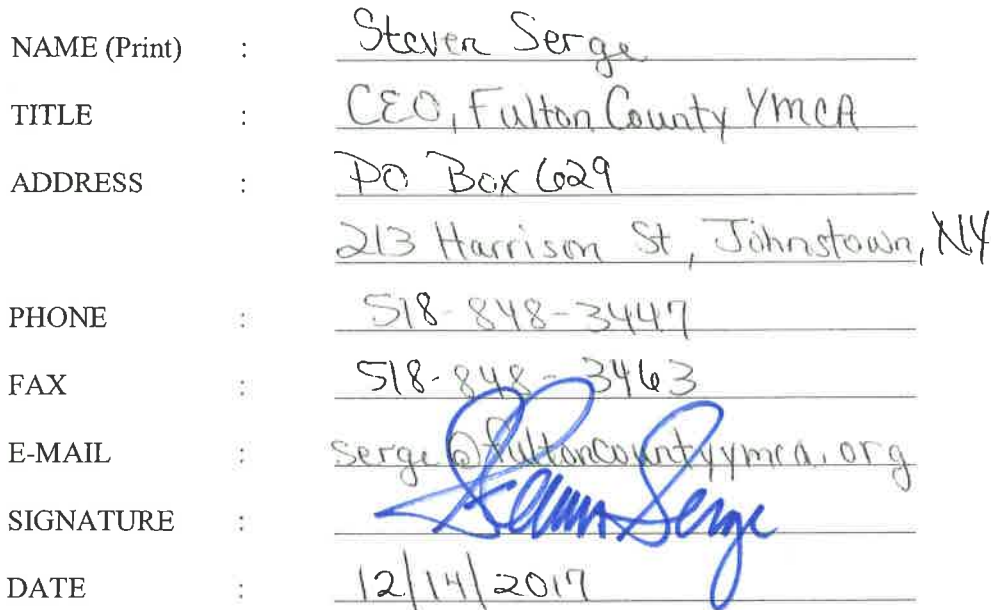 NAME (Print) : Steven Serge
TITLE : CEO, Fulton County YMCA
ADDRESS : PO Box 629
213 Harrison St, Johnstown, NY
PHONE : 518-848-3447
FAX : 518-848-3463
E-MAIL : serge@fultoncountyymca.org
SIGNATURE : Steven Serge
DATE : 12/14/2017